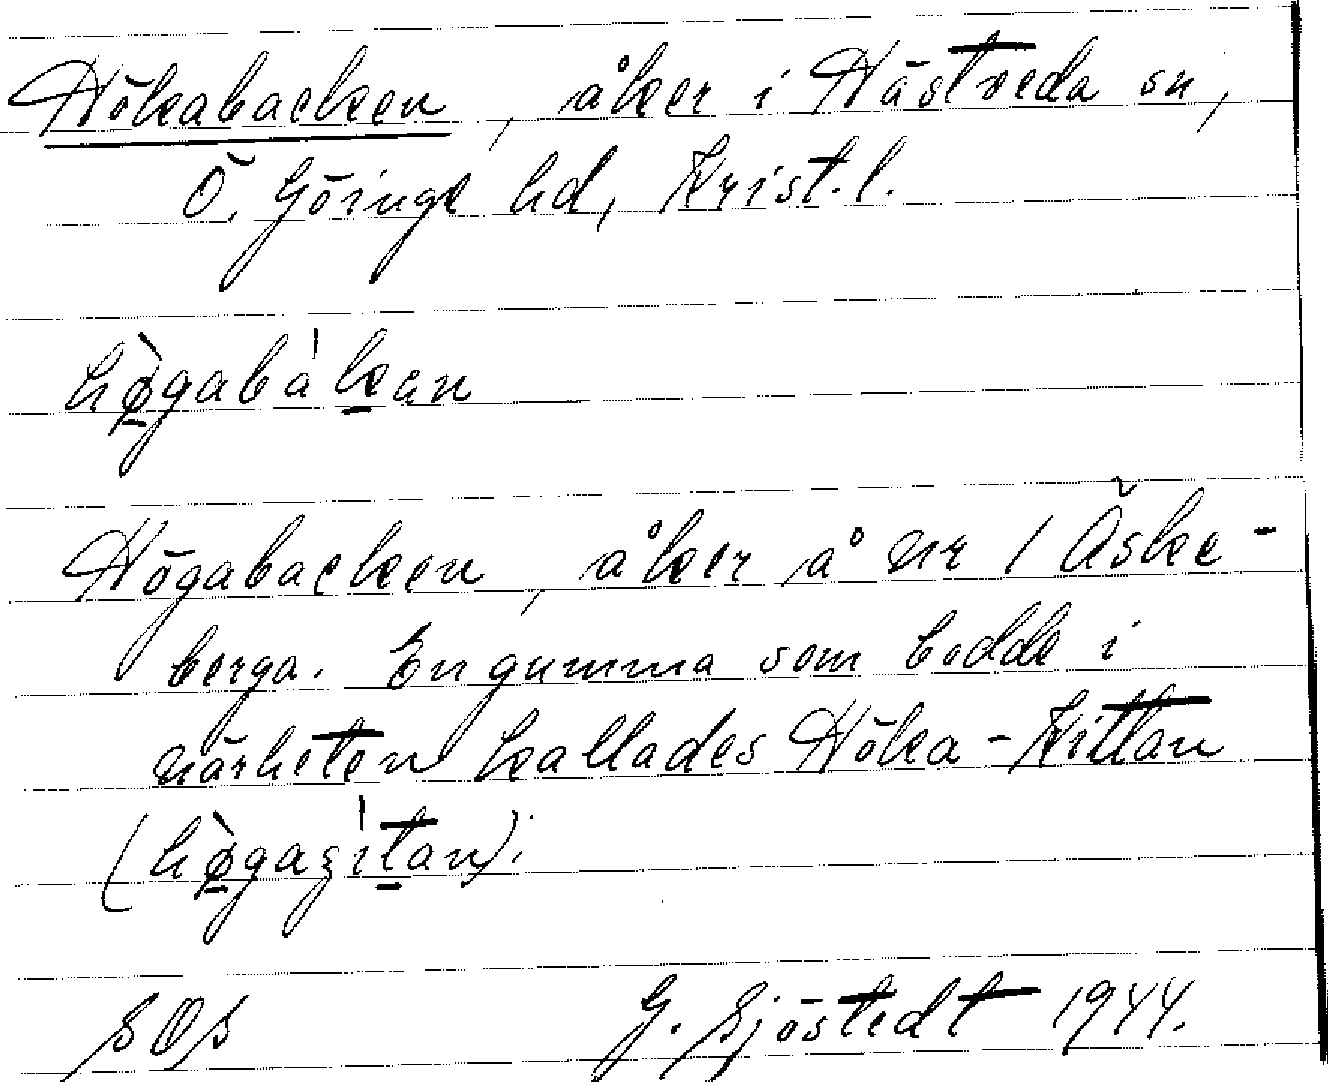 Hökabacken, åker i Hästveda sn,
Ö. Göinge hd, Krist. l.
hø̀gabákan
Högabacken, åker å nr 1 Äske-
berga. En gumma som bodde i
närheten kallades Höka-Kittan
(hø̀gaʒítan).
SOS G. Sjöstedt 1944.